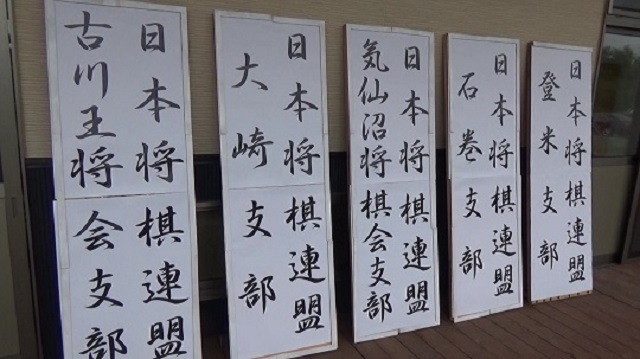 日本将棋連盟
古川王将会支部
日本将棋連盟
大崎支部
日本将棋連盟
気仙沼将棋会支部
日本将棋連盟
石巻支部
日本将棋連盟
登米支部